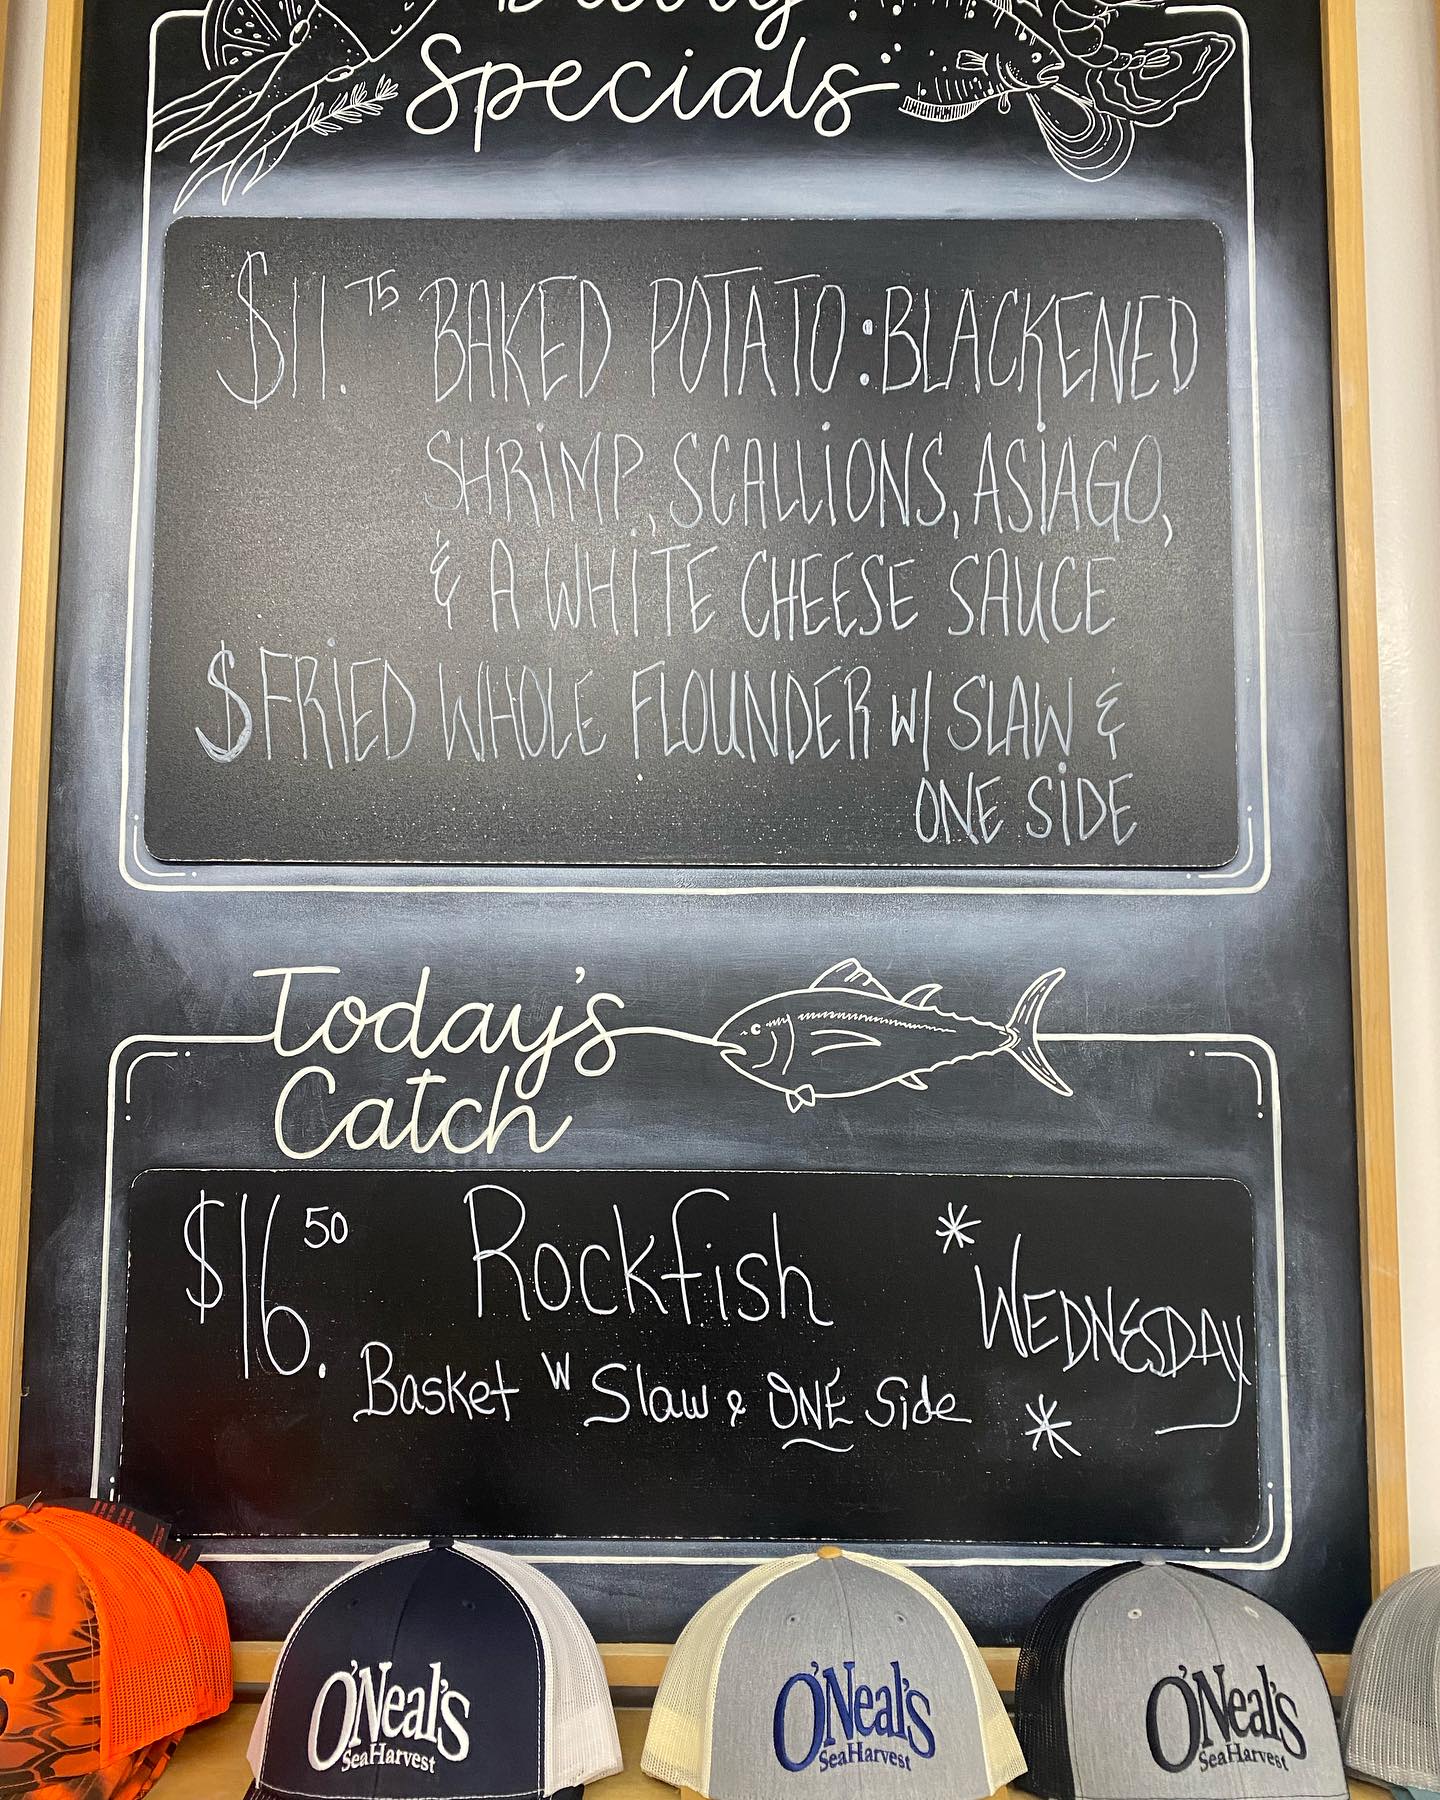 Daily
Specials
$11.75 BAKED POTATO: BLACKENED
SHRIMP, SCALLIONS, ASIAGO,
& A WHITE CHEESE SAUCE
$ FRIED WHOLE FLOUNDER W/ SLAW &
ONE SIDE
Today's
Catch
$16.50 Rockfish
* WEDNESDAY *
Basket w Slaw & ONE Side
O'Neal's
SeaHarvest
O'Neal's
SeaHarvest
O'Neal's
SeaHarvest